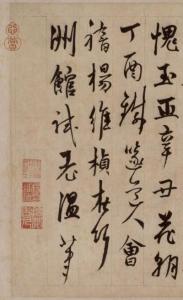 愧至正辛丑花朝
丁酉鐵篴道人會
稽楊維楨在竹
洲館試老溫筆